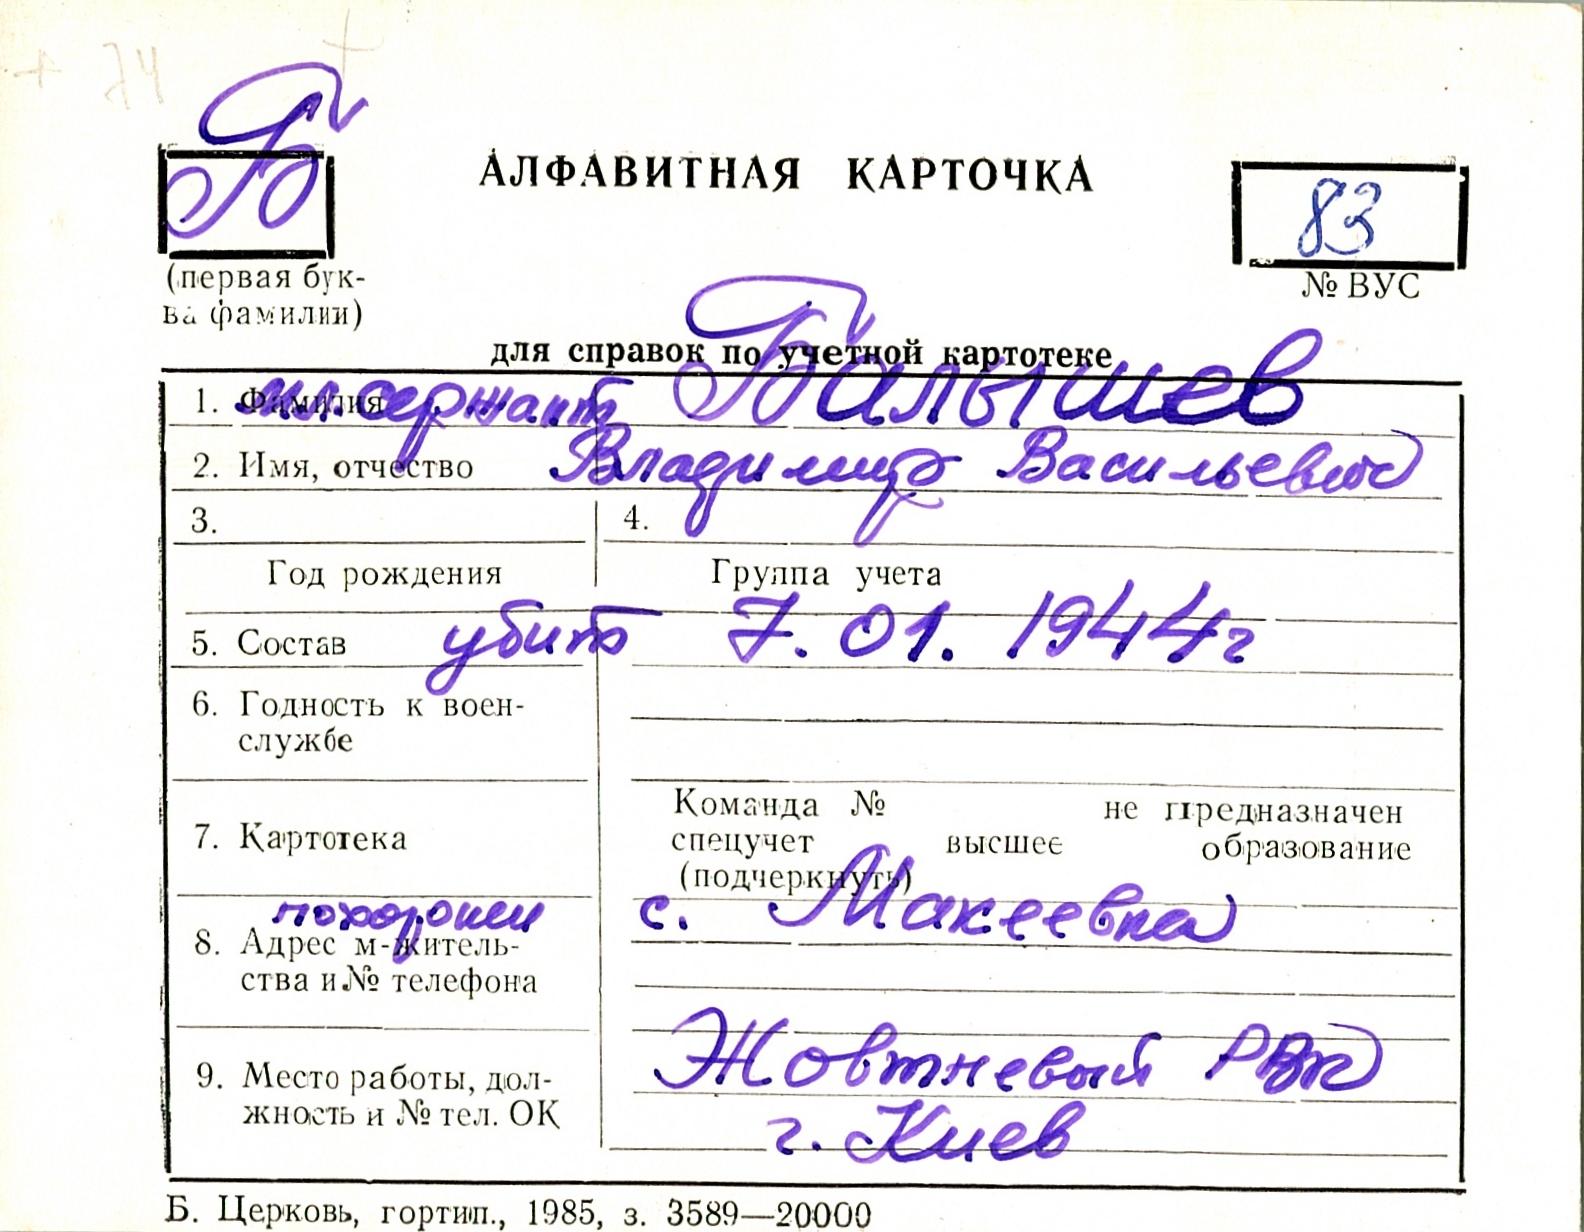 + 74 +
Б
АЛФАВИТНАЯ КАРТОЧКА
83
(первая бук-
ва фамилии)
№ ВУС
для справок по учетной картотеке
1. Фамилия мл. сержант Балышев
2. Имя, отчество Владимир Васильевич
3. 4.
Год рождения Группа учета
5. Состав убит 7. 01. 1944г
6. Годность к воен-
службе
Команда № не предназначен
7. Картотека спецучет высшее образование
(подчеркнуть)
похоронен с. Макеевка
8. Адрес м-житель-
ства и № телефона
Жовтневый РВК
9. Место работы, дол-
жность и № тел. ОК
г. Киев
Б. Церковь, гортип., 1985, з. 3589—20000